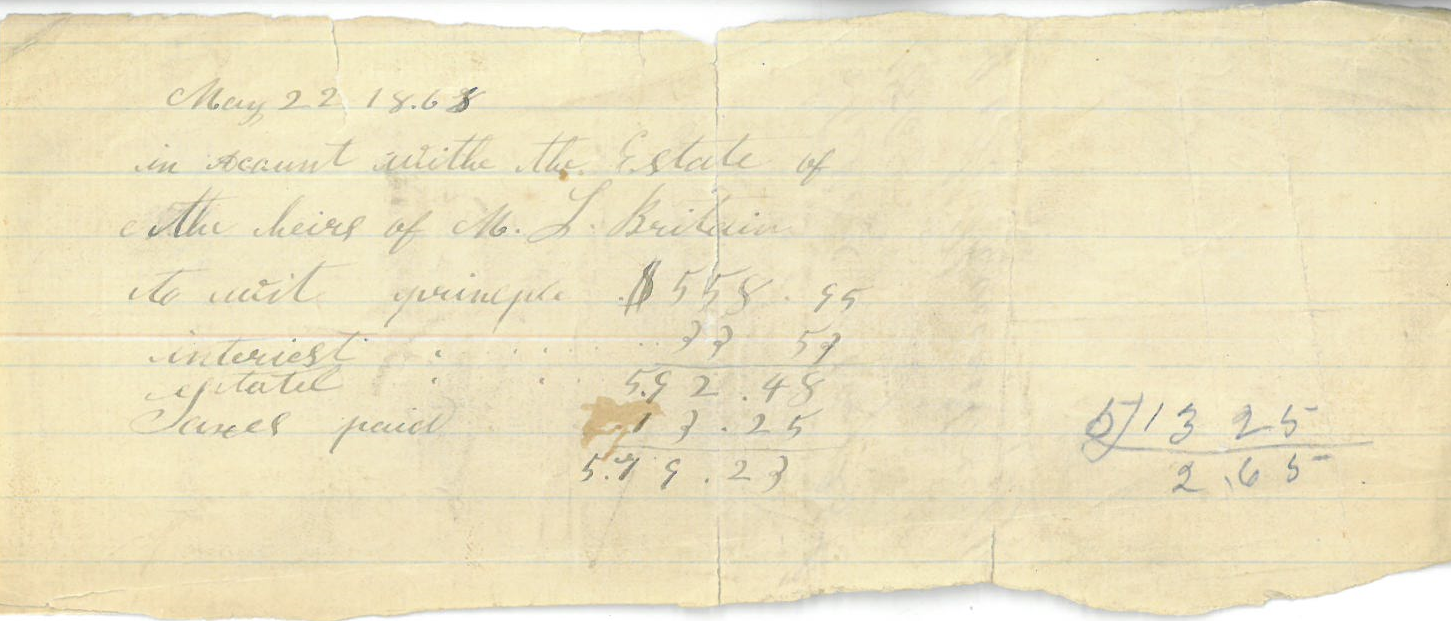 May 22 18.68
in account withe the Estate of
the heirs of M. L. Britain
to wit principle $558.95
interiest . . . . 33 53
. . 592.48
Taxes paid 13.25
5.79.23
5)13 25
2.65